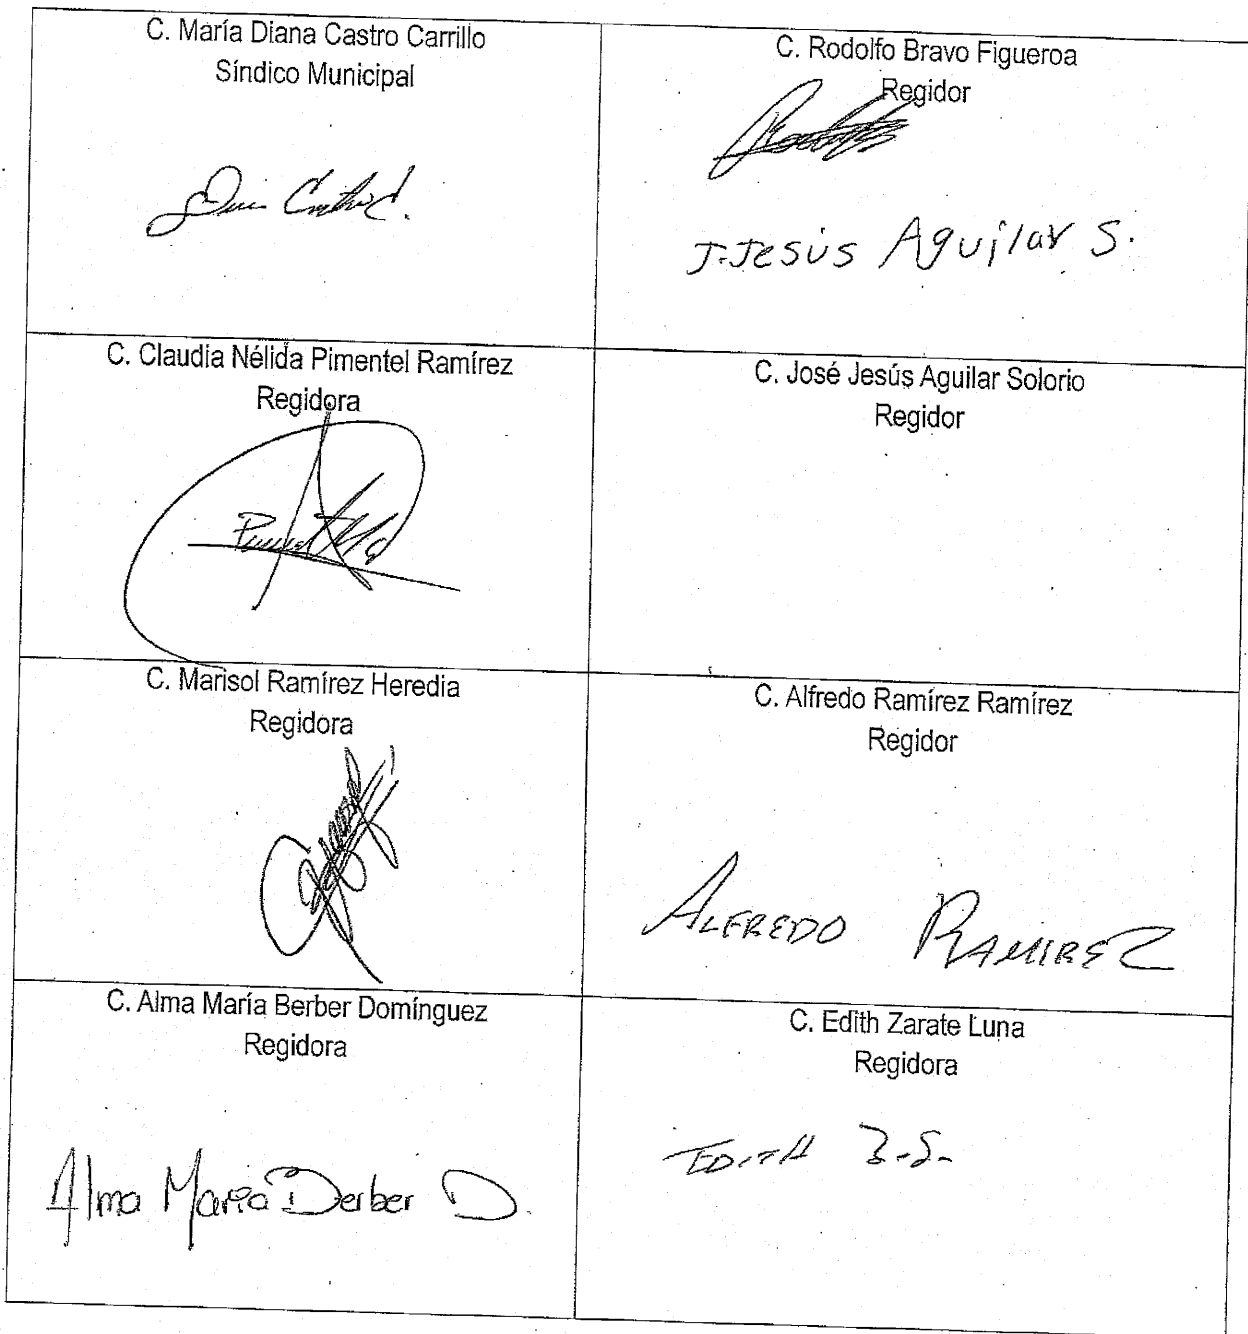 C. María Diana Castro Carrillo
Síndico Municipal
C. Rodolfo Bravo Figueroa
Regidor
J. Jesús Aguilar S.
C. Claudia Nélida Pimentel Ramírez
Regidora
C. José Jesús Aguilar Solorio
Regidor
C. Marisol Ramírez Heredia
Regidora
C. Alfredo Ramírez Ramírez
Regidor
ALFREDO RAMIREZ
C. Alma María Berber Domínguez
Regidora
Alma María Berber D.
C. Edith Zarate Luna
Regidora
EDITH